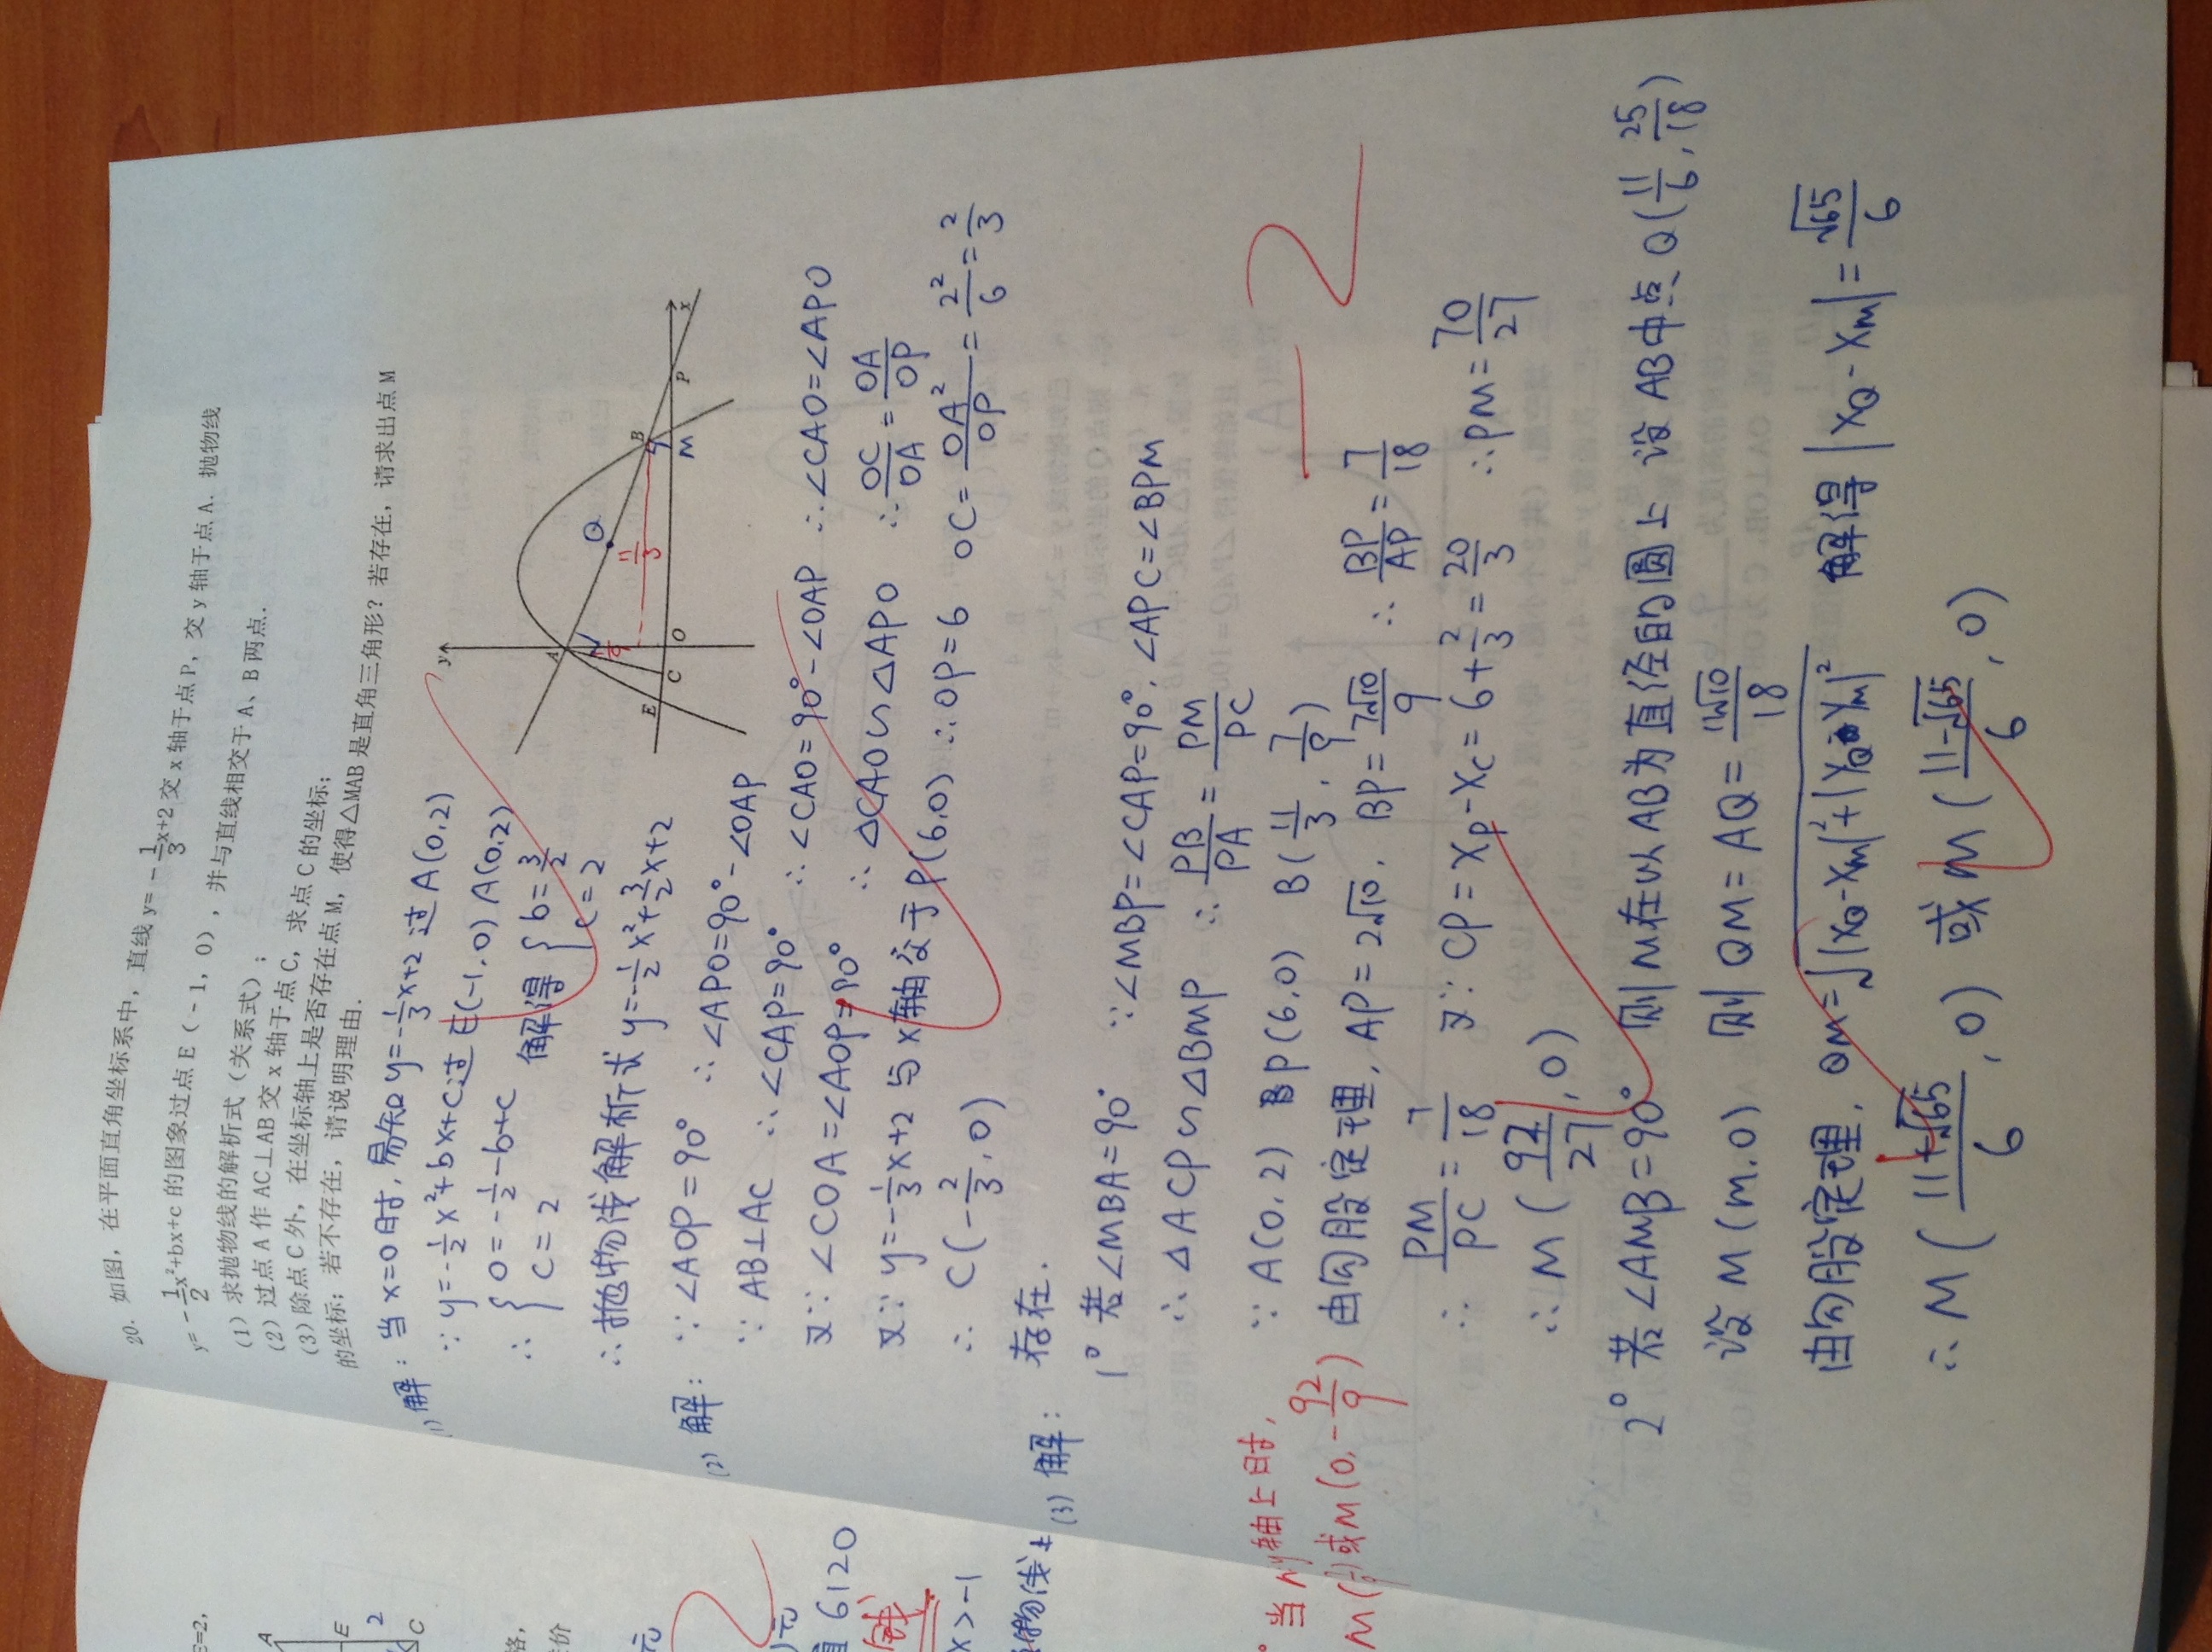 20. 如图，在平面直角坐标系中，直线 y= -1/3x+2 交 x 轴于点 P，交 y 轴于点 A．抛物线
y= -1/2x²+bx+c 的图象过点 E（-1，0），并与直线相交于 A、B 两点．
(1) 求抛物线的解析式（关系式）；
(2) 过点 A 作 AC⊥AB 交 x 轴于点 C，求点 C 的坐标；
(3) 除点 C 外，在坐标轴上是否存在点 M，使得△MAB 是直角三角形？若存在，请求出点 M
的坐标；若不存在，请说明理由．
(1) 解：当 x=0 时，易知 y=-1/3x+2 过 A(0,2)
∵ y=-1/2x²+bx+c 过 E(-1,0) A(0,2)
∴ { 0=-1/2-b+c
c=2 解得 { b=3/2
c=2
∴抛物线解析式 y=-1/2x²+3/2x+2
y
A
Q
11/3
B
E
C
O
M
P
x
(2) 解：∵∠AOP=90° ∴∠APO=90°-∠OAP
∵ AB⊥AC ∴∠CAP=90° ∴∠CAO=90°-∠OAP ∴∠CAO=∠APO
又∵ ∠COA=∠AOP=90° ∴△CAO∽△APO ∴OC/OA=OA/OP
又∵ y=-1/3x+2 与 x轴交于 P(6,0) ∴OP=6 OC=OA²/OP=2²/6=2/3
∴ C(-2/3,0)
(3) 解：存在.
1° 若∠MBA=90° ∵∠MBP=∠CAP=90°，∠APC=∠BPM
∴△ACP∽△BMP ∴PB/PA=PM/PC
∵ A(0,2) P(6,0) B(11/3,7/9)
由勾股定理，AP=2√10，BP=7√10/9 ∴BP/AP=7/18
∴ PM/PC=7/18 又∵ CP=xP-xC=6+2/3=20/3 ∴PM=70/27
∴M(92/27,0)
2° 若∠AMB=90° 则M在以AB为直径的圆上 设AB中点Q(11/6,25/18)
设M(m,0) 则 QM=AQ=11√10/18
由勾股定理，QM=√|xQ-xM|²+|yQ-yM|² 解得|xQ-xM|=√65/6
∴M(11+√65/6,0) 或M(11-√65/6,0)
-2
当 y轴上时，
或M(0,-92/9)
E=2,
A
E
2
C
格，
价
元
6120
x>-1
物线上